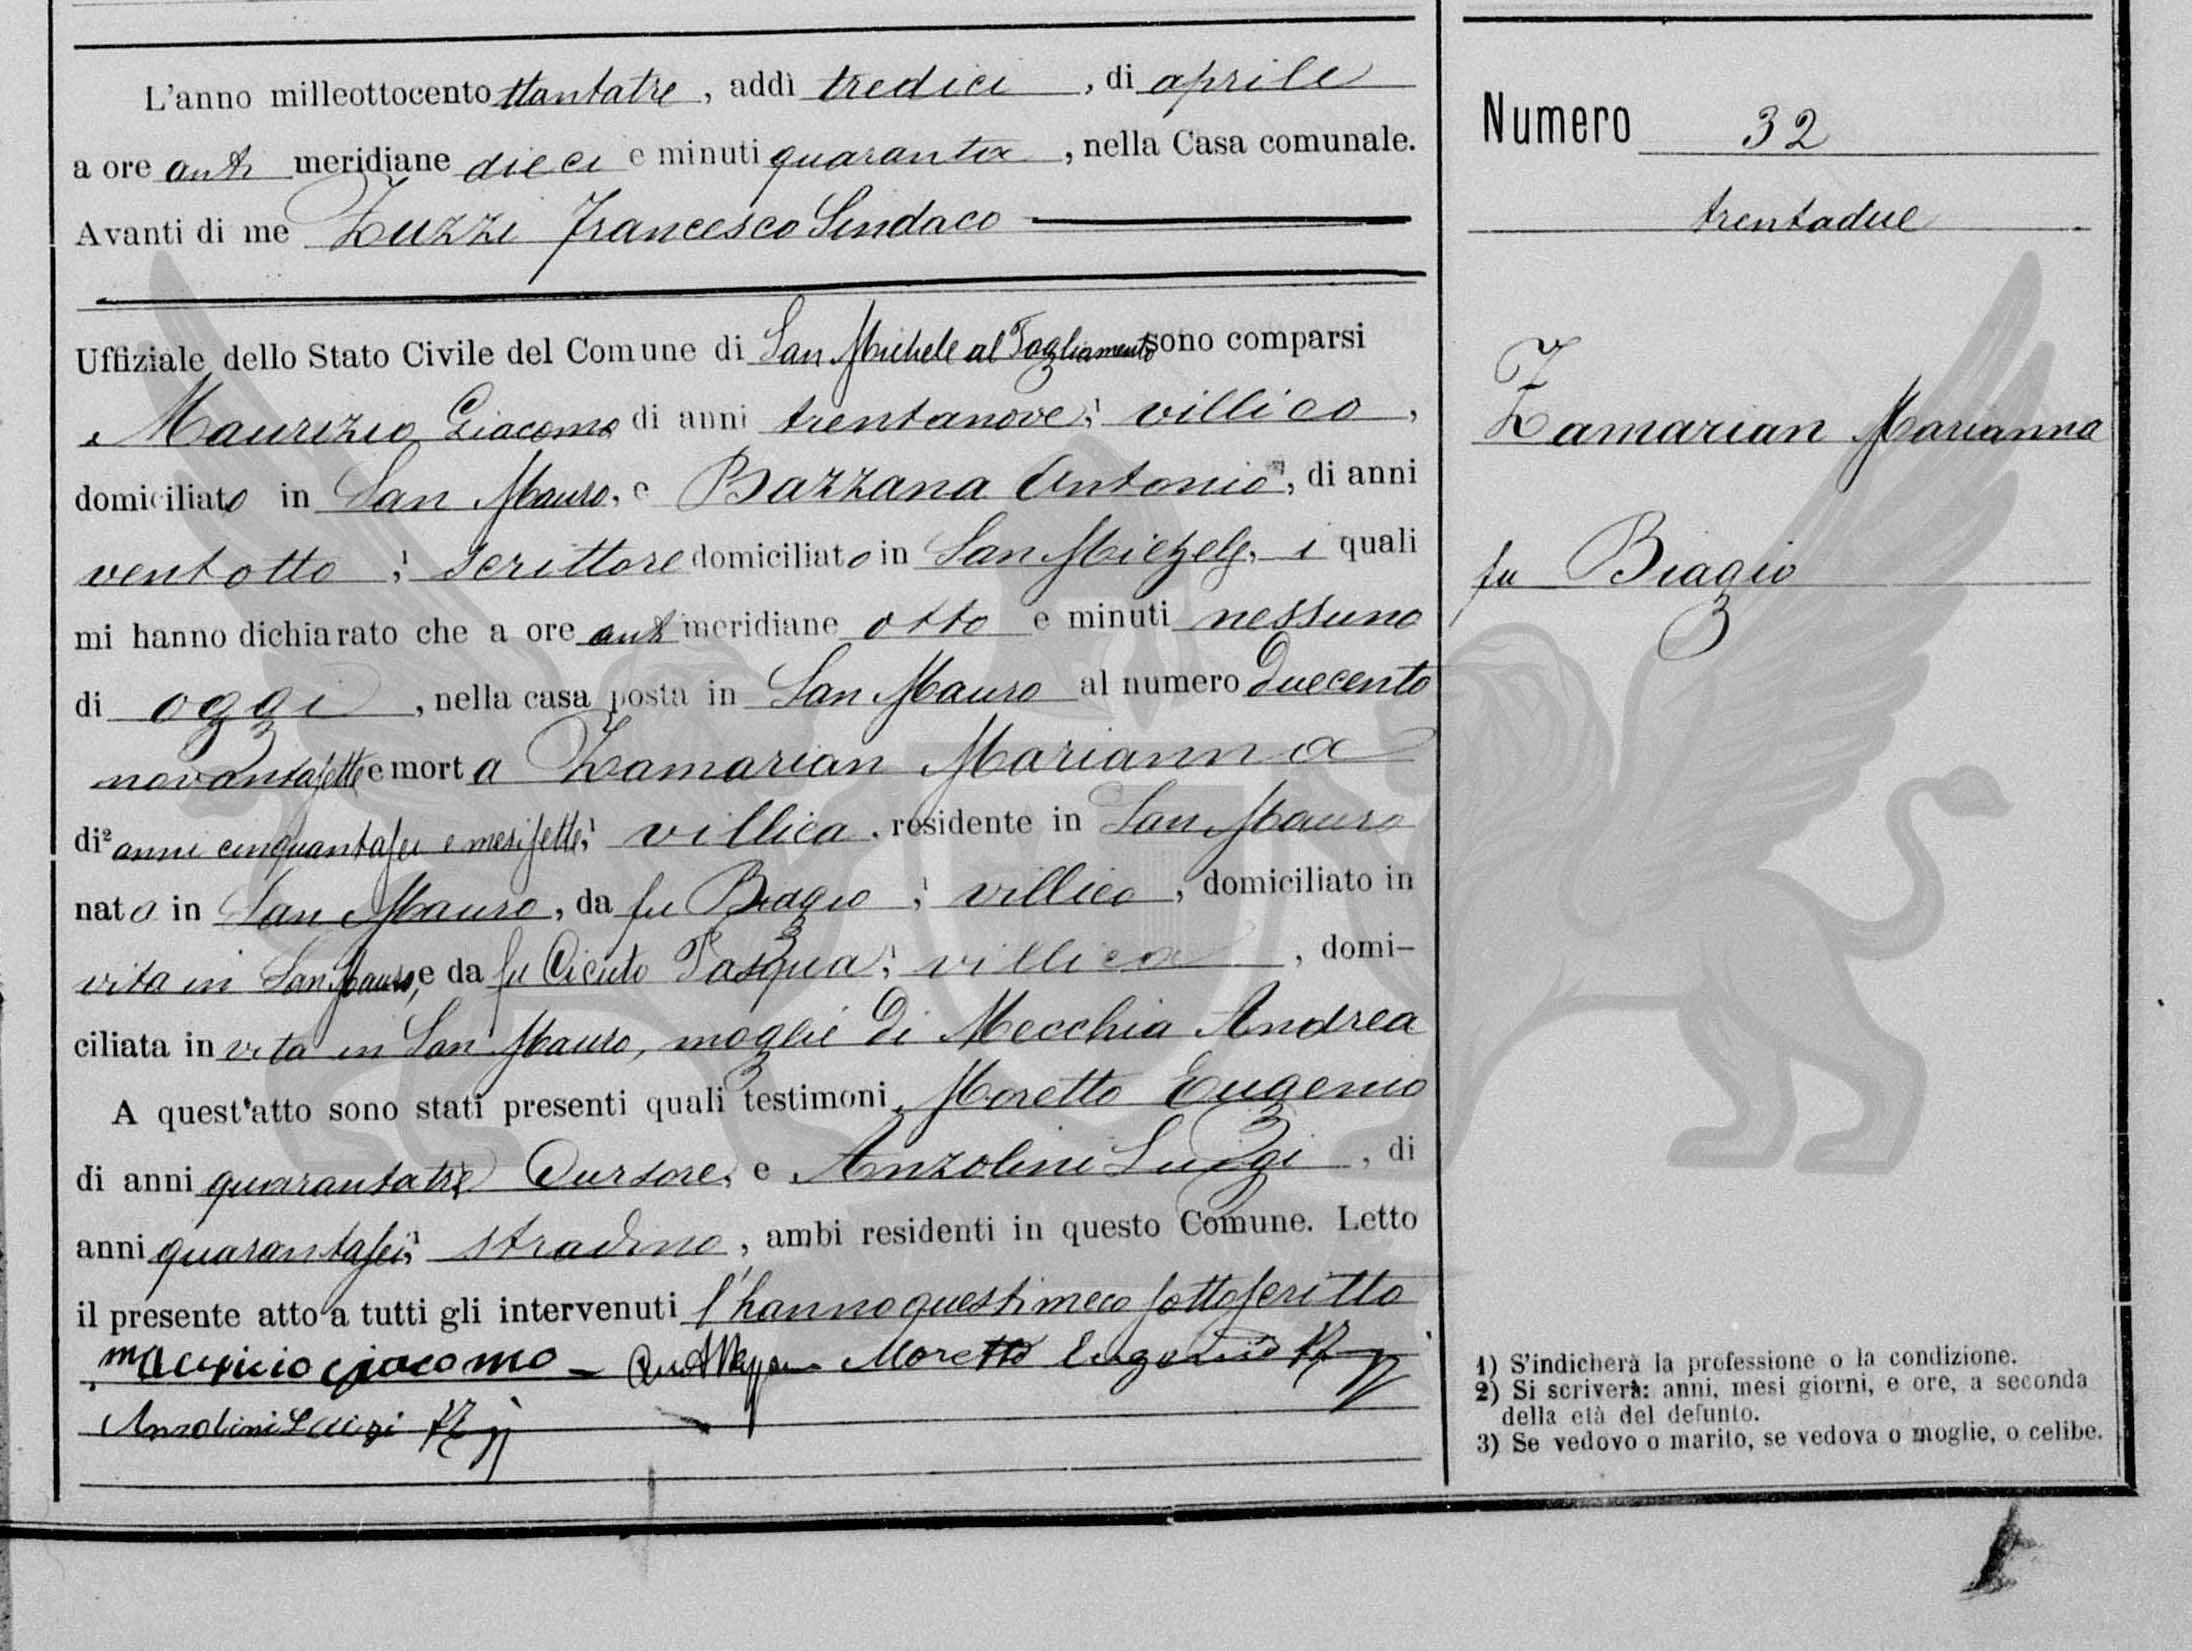 L'anno milleottocento ttantatre, addì tredici, di aprile
a ore anti meridiane dieci e minuti quaranta, nella Casa comunale.
Avanti di me Zuzzi Francesco Sindaco
Uffiziale dello Stato Civile del Comune di San Michele al Tagliamento sono comparsi
Maurizio Giacomo di anni trentanove, villico,
domiciliato in San Mauro, e Bazzana Antonio, di anni
ventotto, scrittore domiciliato in San Michele, i quali
mi hanno dichiarato che a ore ant meridiane otto e minuti nessuno
di oggi, nella casa posta in San Mauro al numero duecento
novantasette e morta Zamarian Marianna
di² anni cinquantasei e mesi sette, villica, residente in San Mauro
nata in San Mauro, da fu Biagio, villico, domiciliato in
vita in San Mauro, e da fu Cicuto Pasqua, villica, domi-
ciliata in vita in San Mauro, moglie di Mecchia Andrea
A quest'atto sono stati presenti quali testimoni Moretto Eugenio
di anni quarantatre Cursore, e Anzolini Luigi, di
anni quarantasei, stradino, ambi residenti in questo Comune. Letto
il presente atto a tutti gli intervenuti l'hanno questi meco sottoscritto
Maurizio Giacomo - Moretto Eugenio
Anzolini Luigi
Numero 32
trentadue
Zamarian Marianna
fu Biagio
1) S'indicherà la professione o la condizione.
2) Si scriverà: anni, mesi giorni, e ore, a seconda
della età del defunto.
3) Se vedovo o marito, se vedova o moglie, o celibe.